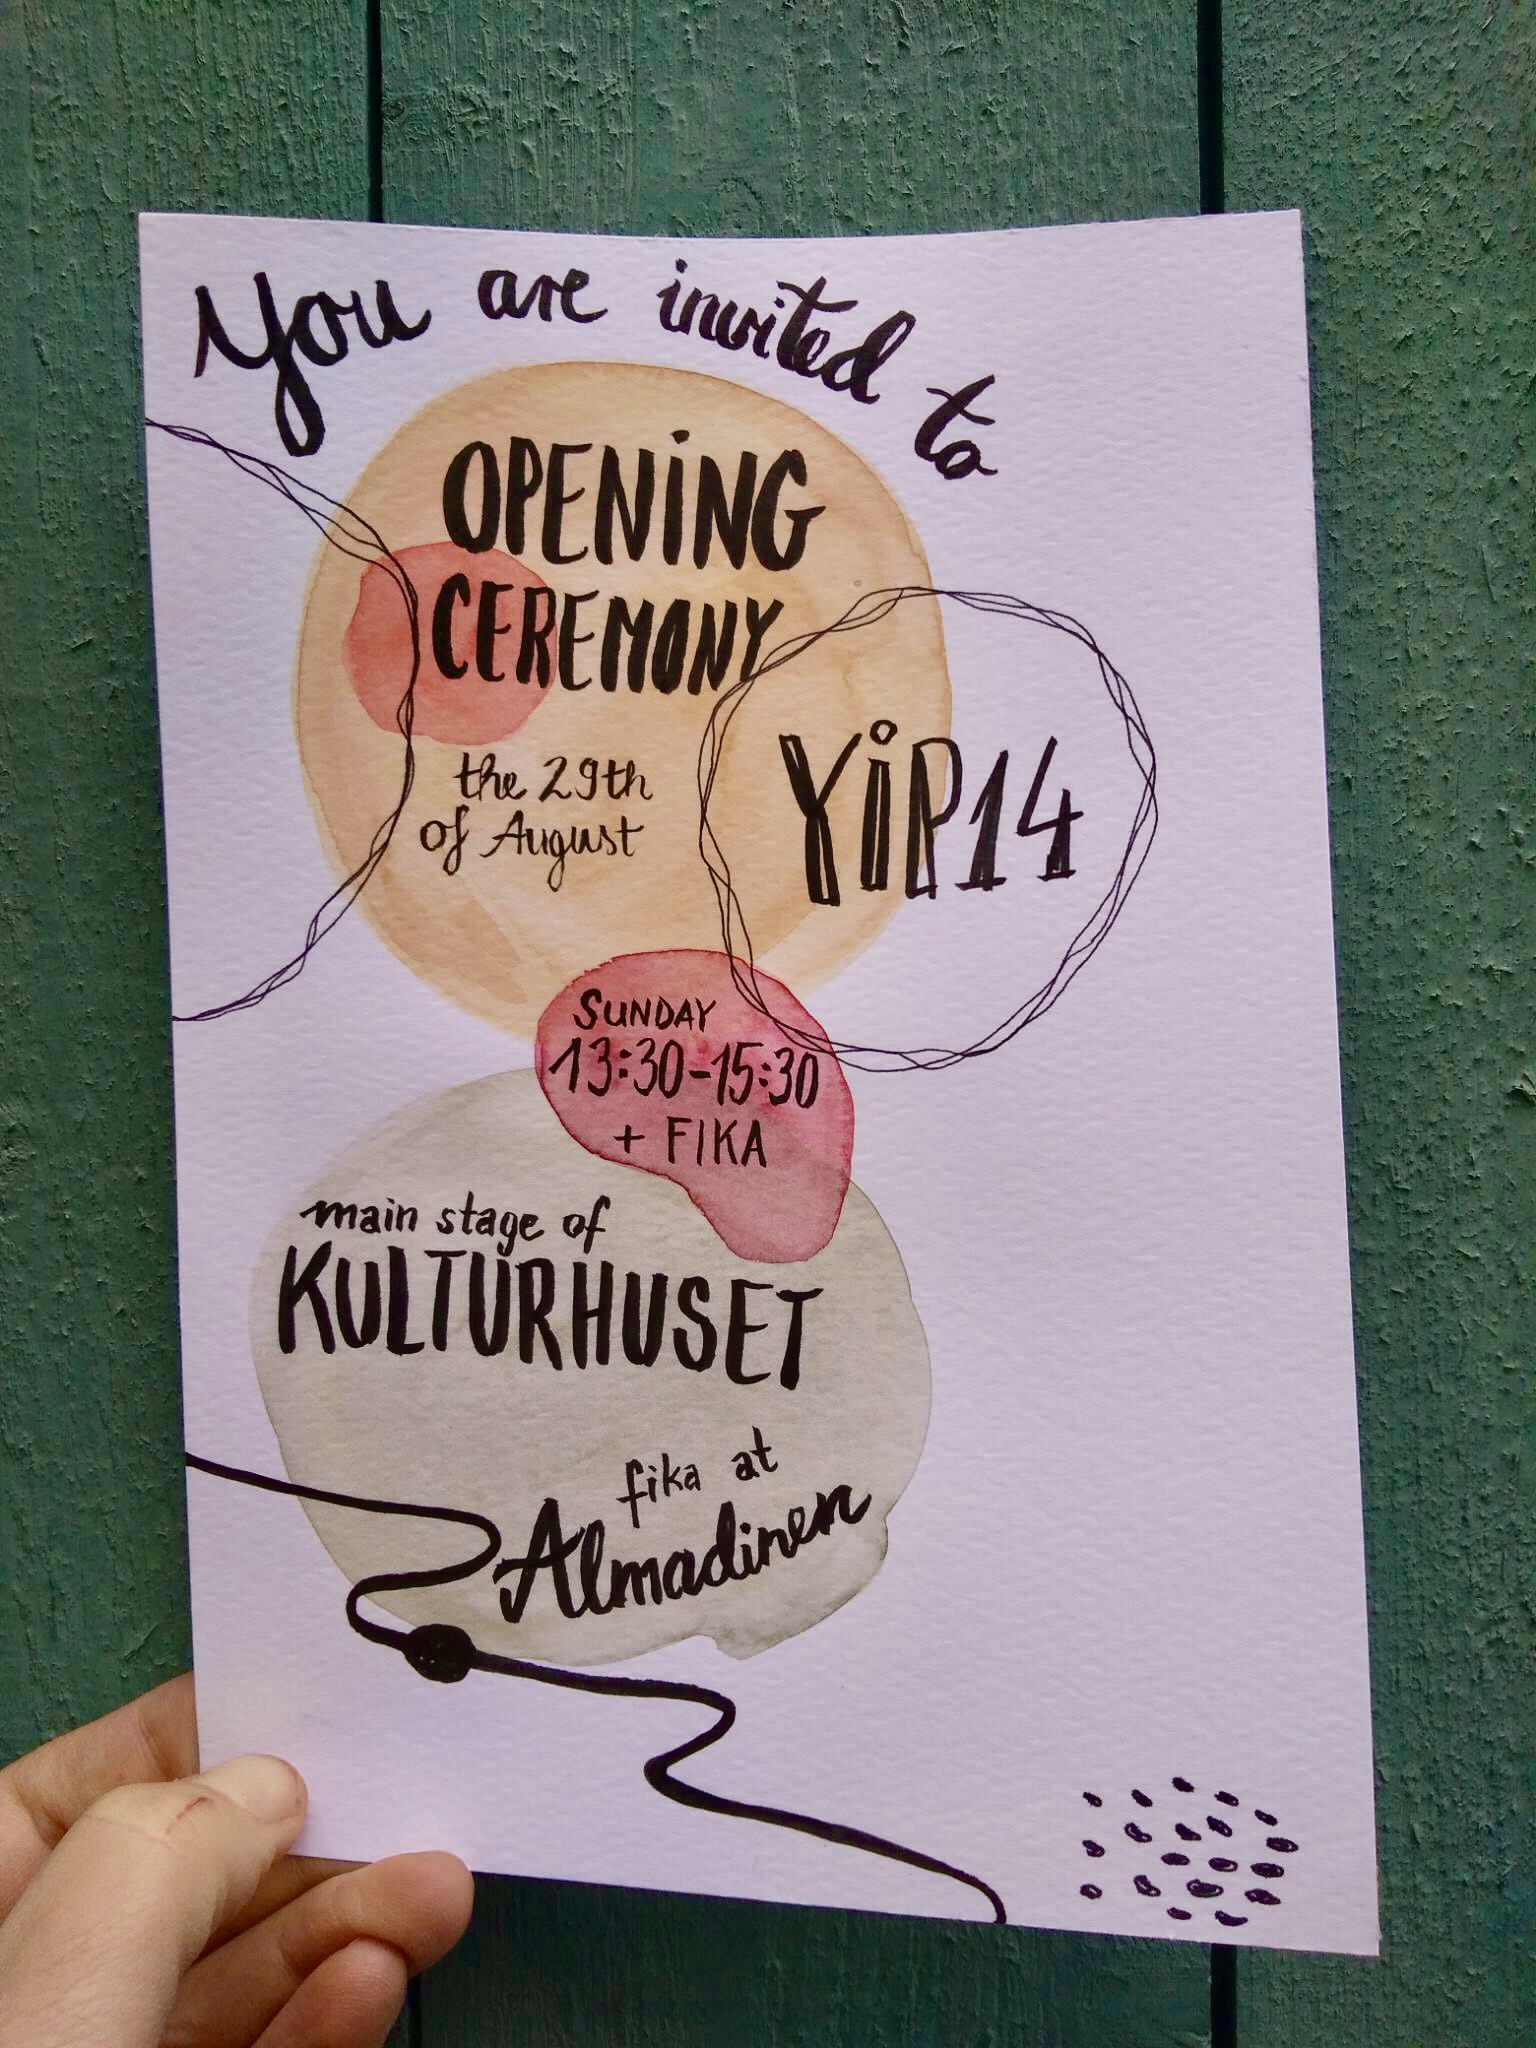 You are invited to
OPENiNG
CEREMONY
YiP14
the 29th
of August
SUNDAY
13:30-15:30
+ FIKA
main stage of
KULTURHUSET
fika at
Almadinen